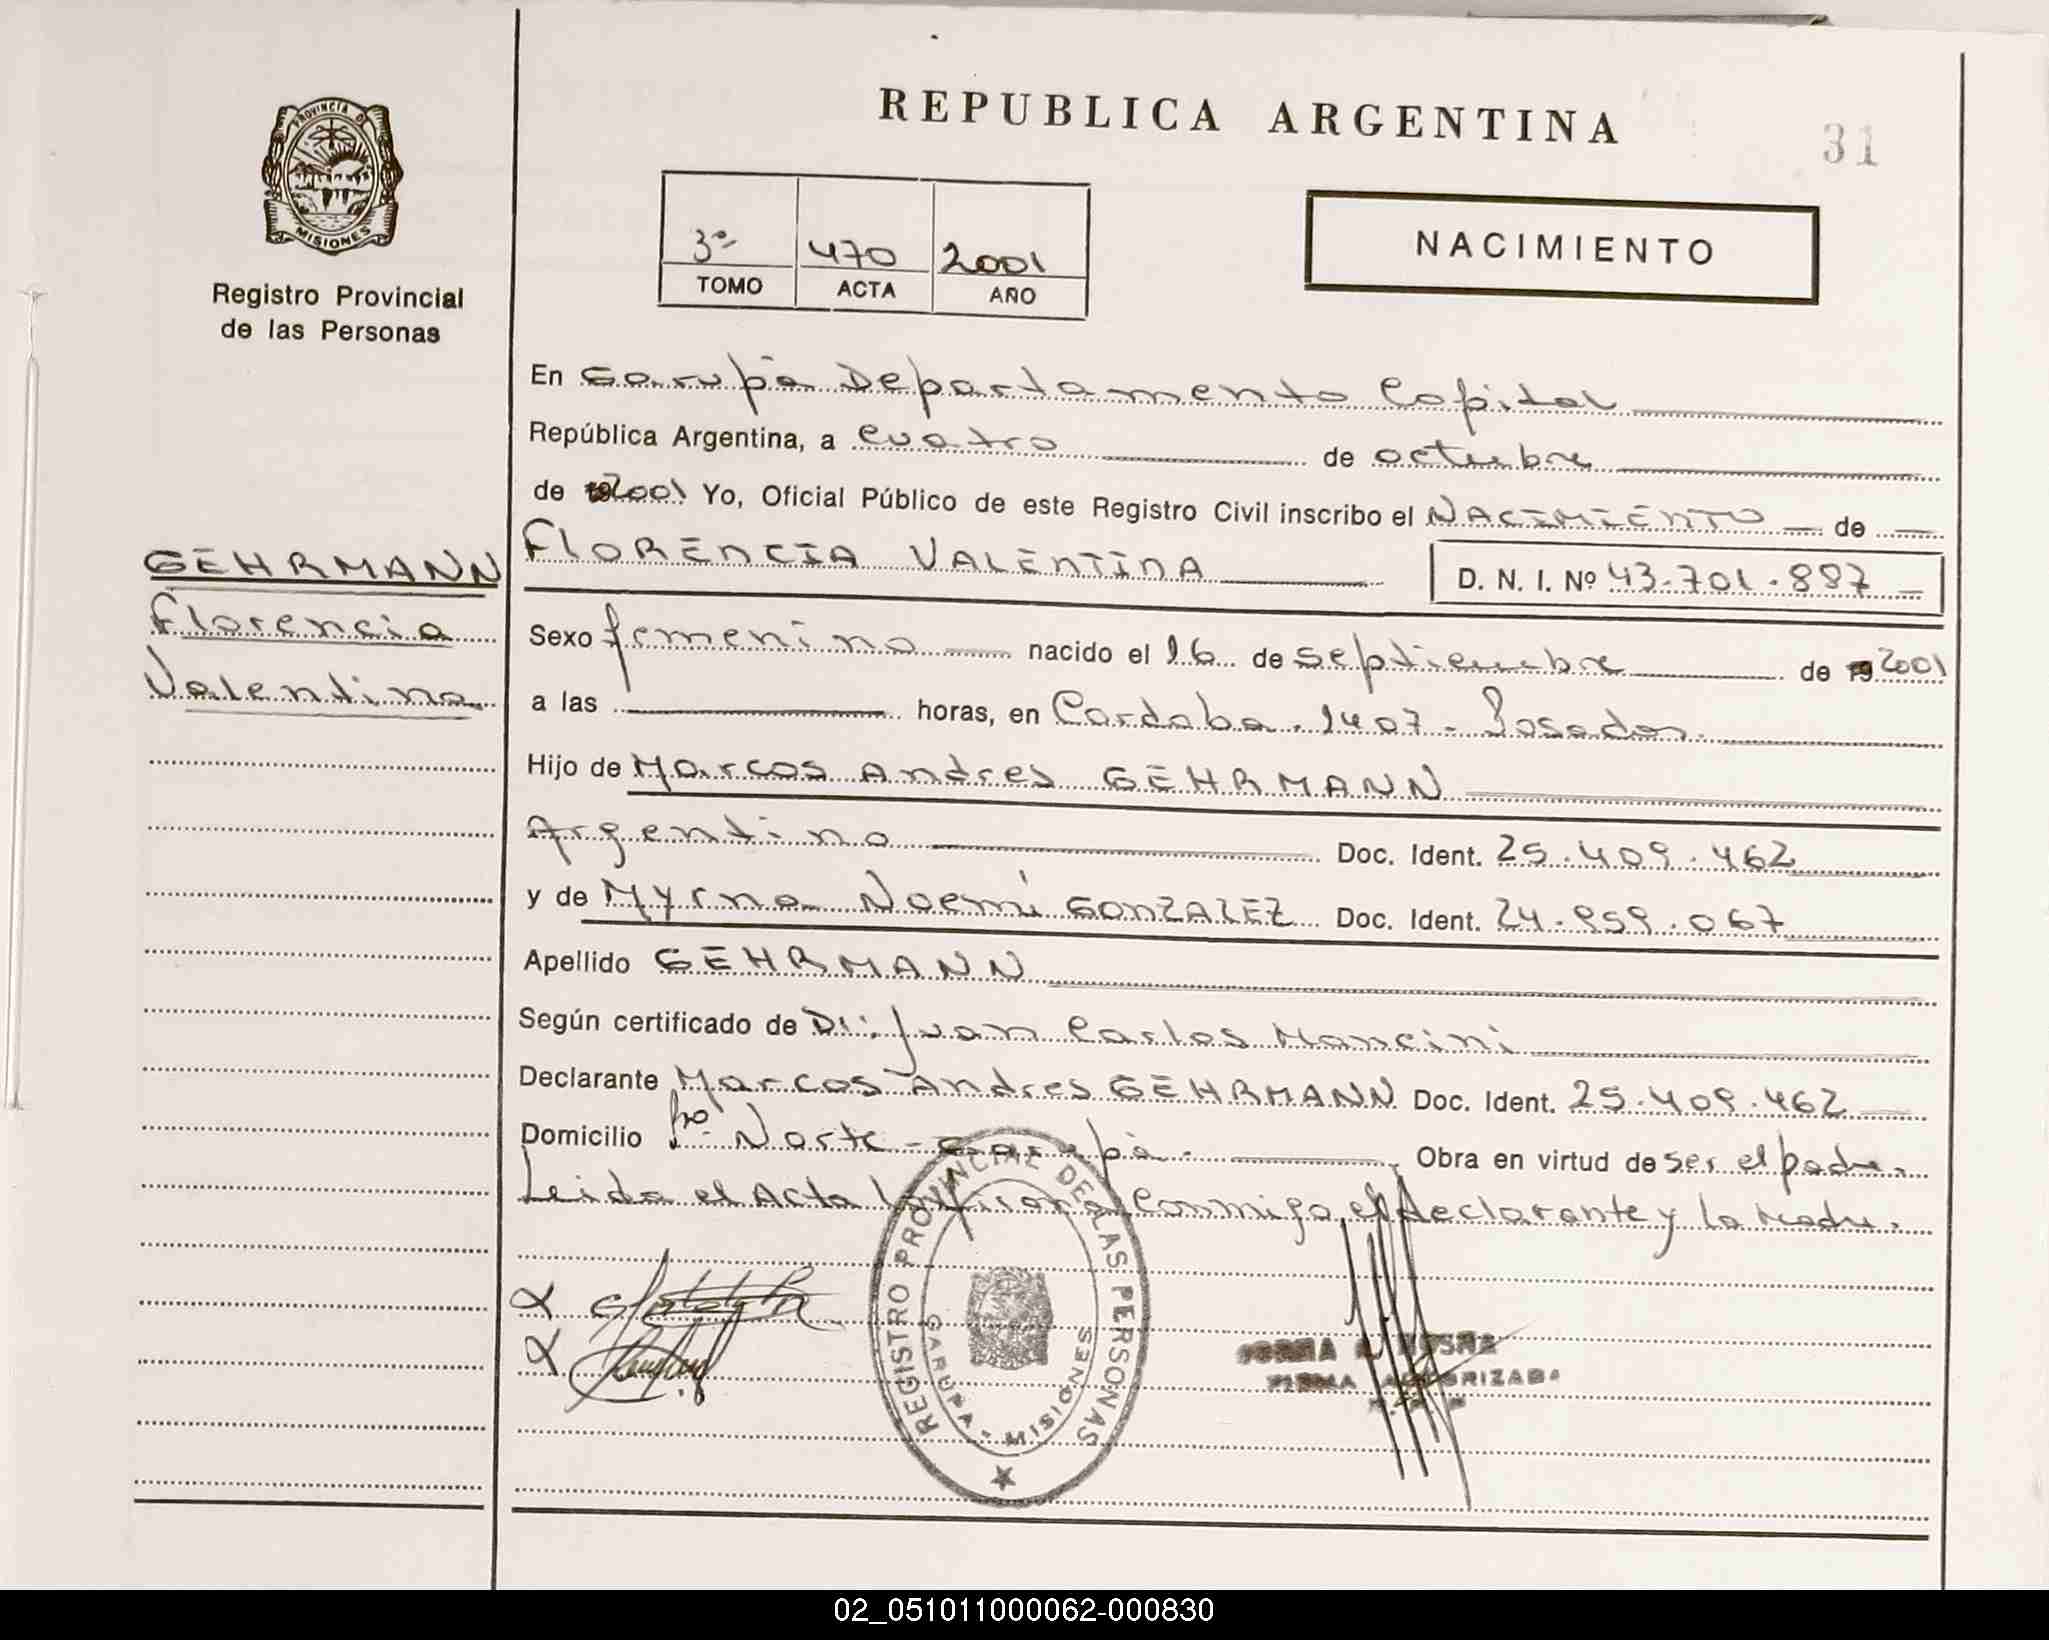 REPUBLICA ARGENTINA
31
PROVINCIA D
MISIONES
Registro Provincial
de las Personas
3º 470 2001
TOMO ACTA AÑO
NACIMIENTO
En Garupá Departamento Capital
República Argentina, a cuatro de octubre
de 2001 Yo, Oficial Público de este Registro Civil inscribo el NACIMIENTO de
GEHRMANN
Florencia
Valentina
FLORENCIA VALENTINA D. N. I. Nº 43.701.887
Sexo femenino nacido el 16 de septiembre de 2001
a las horas, en Cordoba 1407 - Posadas
Hijo de Marcos Andres GEHRMANN
Argentino Doc. Ident. 25.409.462
y de Myrna Noemí GONZALEZ Doc. Ident. 24.959.067
Apellido GEHRMANN
Según certificado de Dr: Juan Carlos Mancini
Declarante Marcos Andres GEHRMANN Doc. Ident. 25.409.462
Domicilio Bº Norte - Garupá. Obra en virtud de ser el padre.
Leida el Acta la firman conmigo, el declarante y la Madre.
REGISTRO PROVINCIAL DE LAS PERSONAS
GARUPA - MISIONES
FIRMA AUTORIZADA
02_051011000062-000830